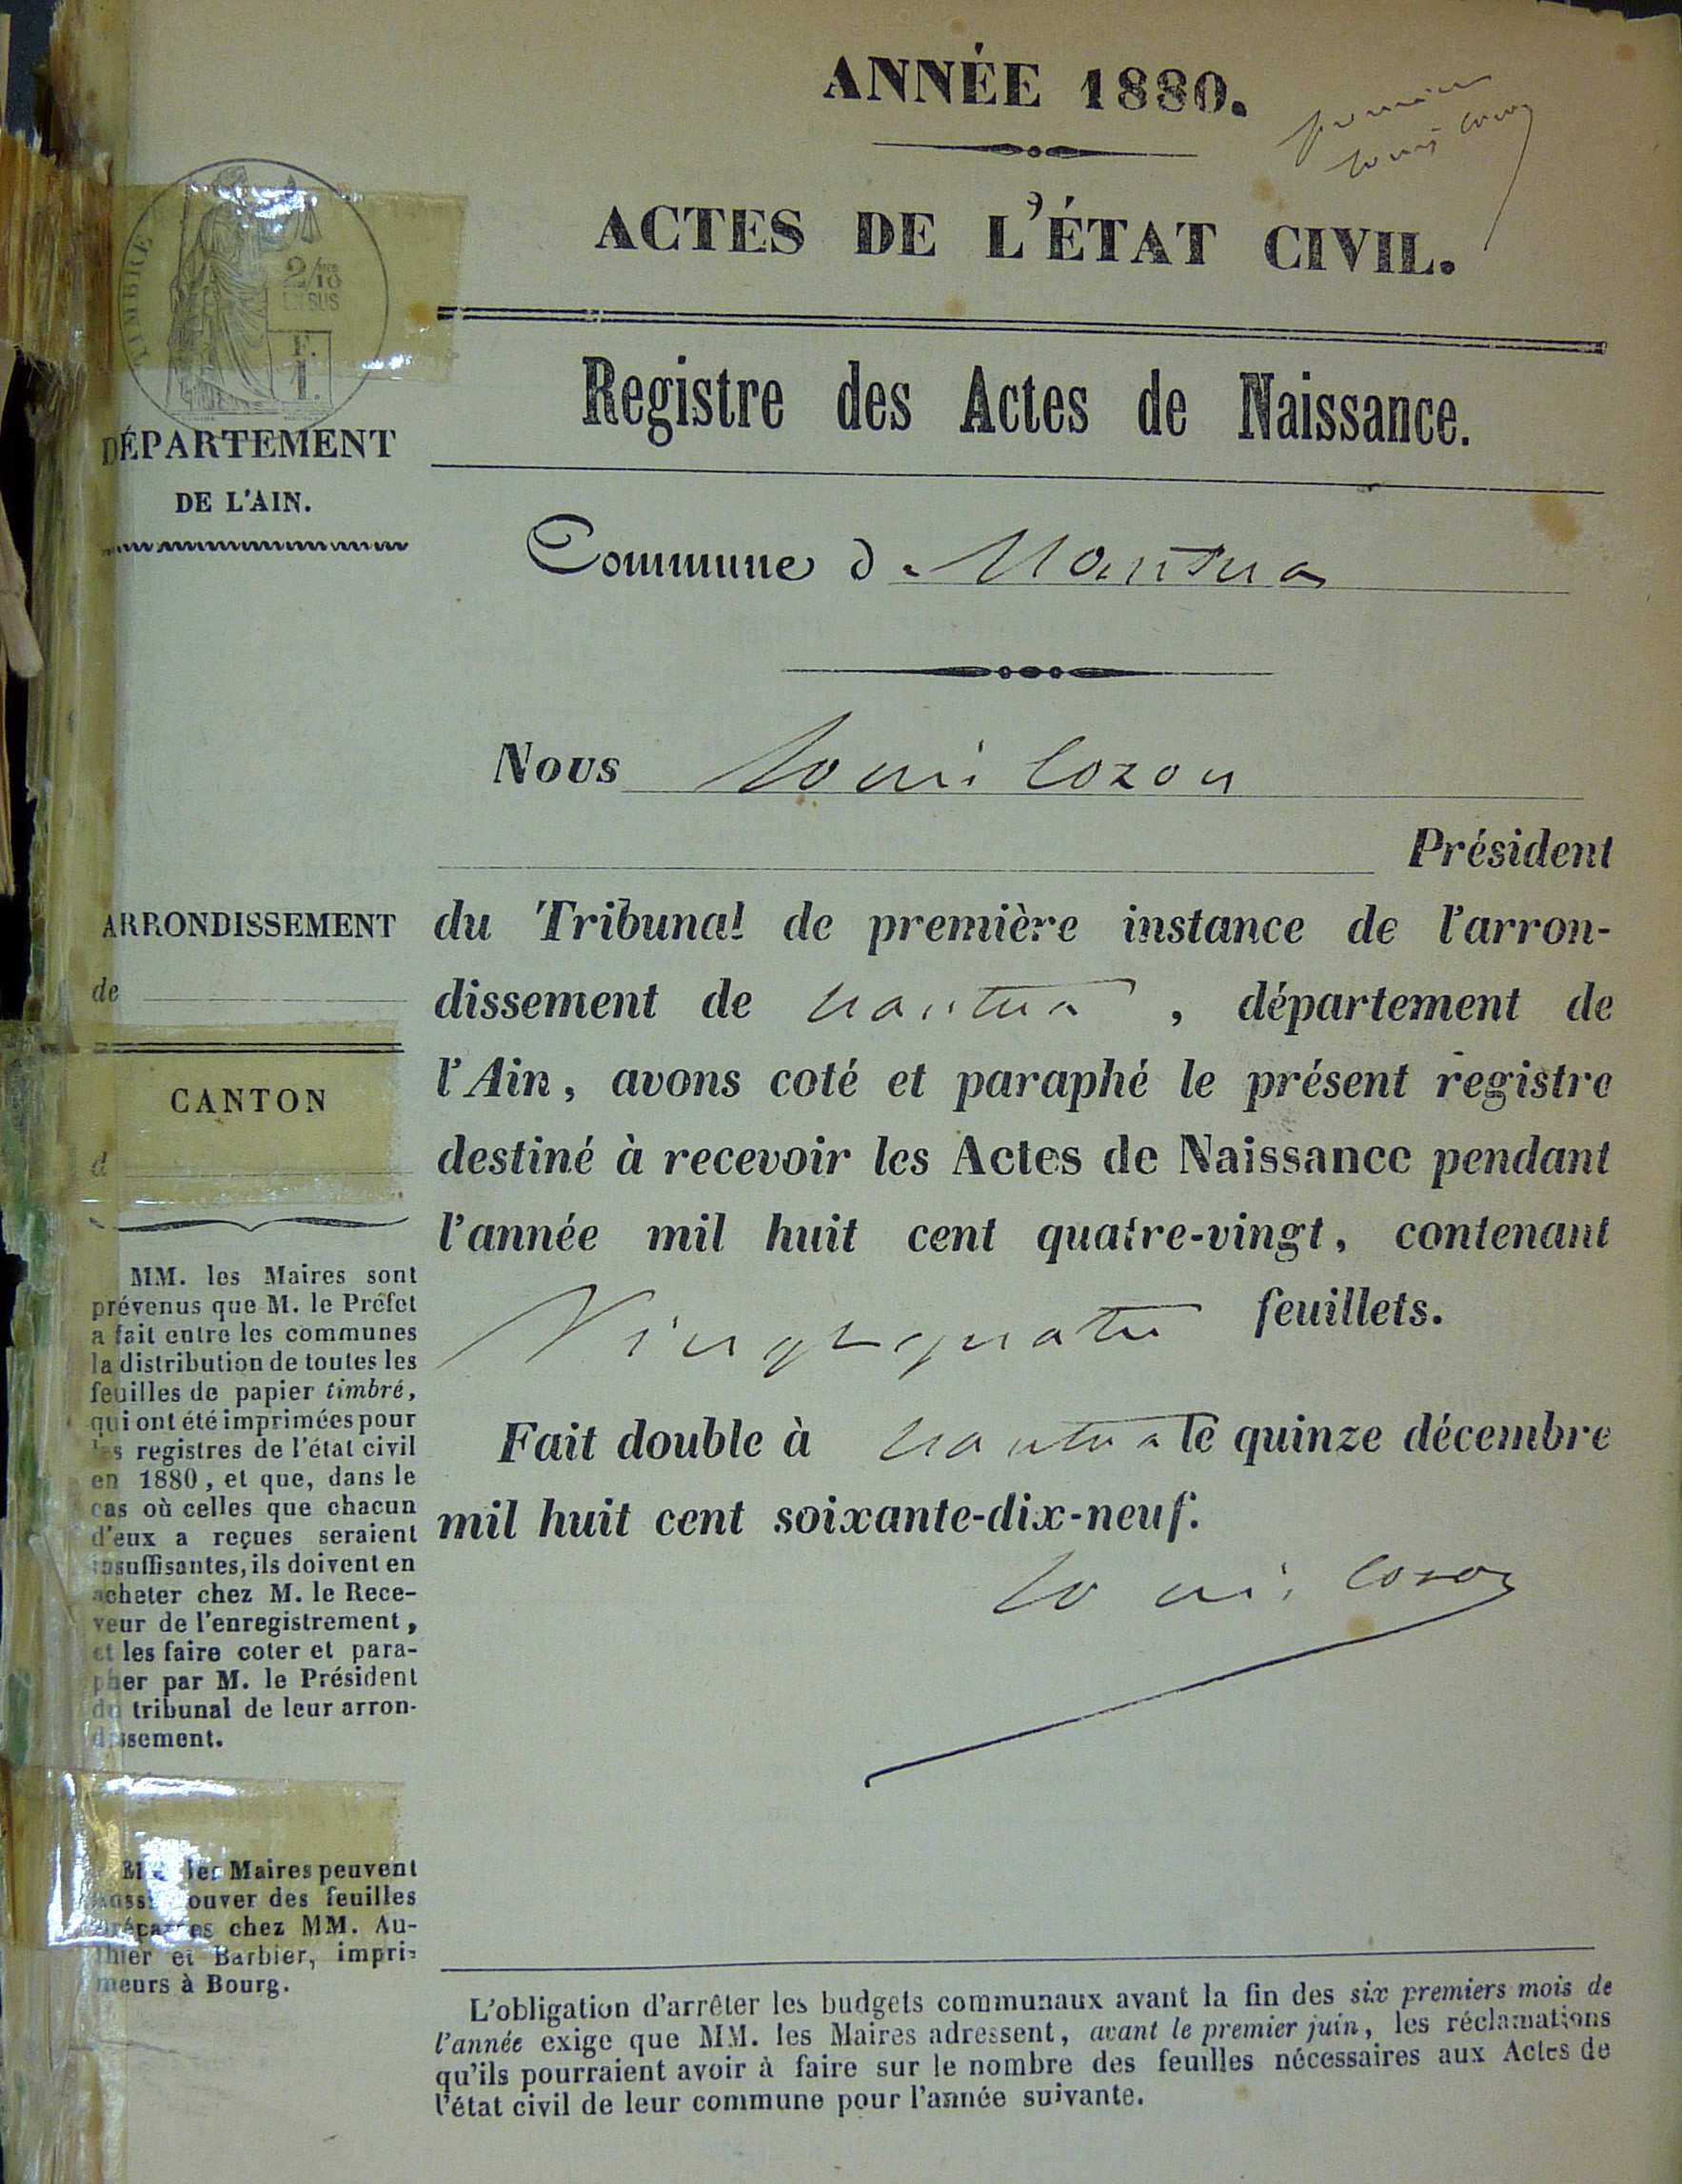 ANNÉE 1880.
premier
Louis Cozon
ACTES DE L'ÉTAT CIVIL.
TIMBRE
2/10
EN SUS
F.
1.
Registre des Actes de Naissance.
DÉPARTEMENT
DE L'AIN.
Commune d Nantua
Nous Louis Cozon
Président
du Tribunal de première instance de l'arron-
dissement de nantua, département de
l'Ain, avons coté et paraphé le présent registre
destiné à recevoir les Actes de Naissance pendant
l'année mil huit cent quatre-vingt, contenant
Vingt quatre feuillets.
Fait double à nantua le quinze décembre
mil huit cent soixante-dix-neuf.
Louis Cozon
ARRONDISSEMENT
de
CANTON
d
MM. les Maires sont
prévenus que M. le Préfet
a fait entre les communes
la distribution de toutes les
feuilles de papier timbré,
qui ont été imprimées pour
les registres de l'état civil
en 1880, et que, dans le
cas où celles que chacun
d'eux a reçues seraient
insuffisantes, ils doivent en
acheter chez M. le Rece-
veur de l'enregistrement,
et les faire coter et para-
pher par M. le Président
du tribunal de leur arron-
dissement.
MM. les Maires peuvent
aussi trouver des feuilles
préparées chez MM. Au-
thier et Barbier, impri-
meurs à Bourg.
L'obligation d'arrêter les budgets communaux avant la fin des six premiers mois de
l'année exige que MM. les Maires adressent, avant le premier juin, les réclamations
qu'ils pourraient avoir à faire sur le nombre des feuilles nécessaires aux Actes de
l'état civil de leur commune pour l'année suivante.